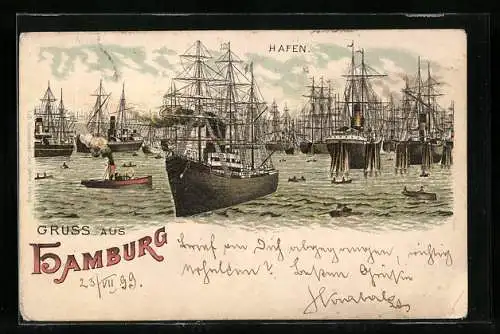 HAFEN.
GRUSS AUS
HAMBURG
Brief an Dich abgegangen, richtig
erhalten? Besten Grüße
23/VII 99.